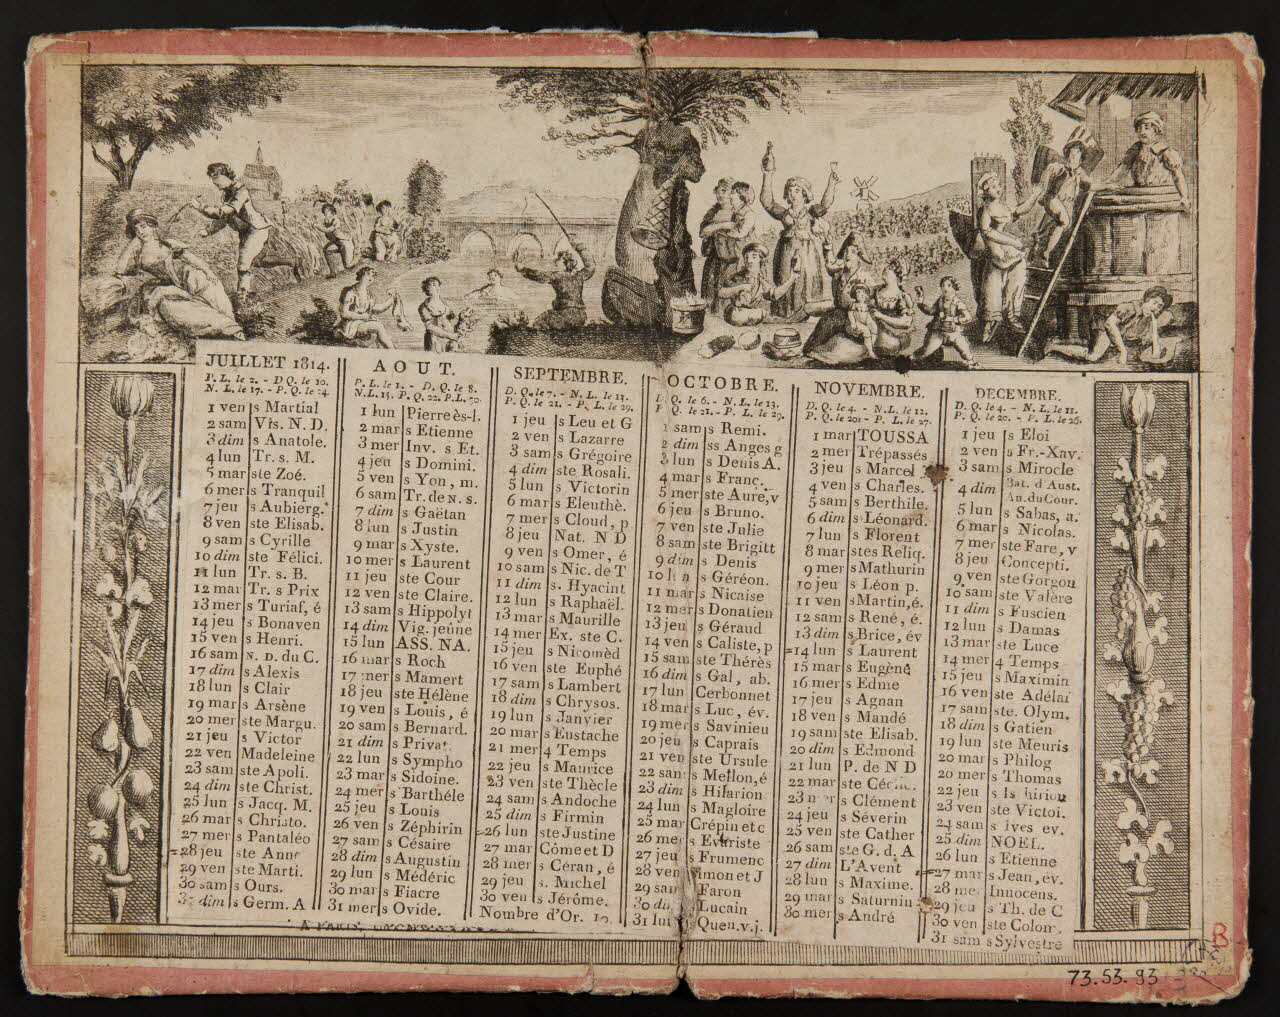 JUILLET 1814.
P. L. le 2. - D Q. le 10.
N. L. le 17. - P. Q. le 24.
1 ven s Martial
2 sam Vts. N. D.
3 dim s Anatole.
4 lun Tr. s. M.
5 mar ste Zoé.
6 mer s Tranquil
7 jeu s Aubierg.
8 ven ste Elisab.
9 sam s Cyrille
10 dim ste Félici.
11 lun Tr. s. B.
12 mar Tr. s Prix
13 mer s Turiaf, é
14 jeu s Bonaven
15 ven s Henri.
16 sam N. D. du C.
17 dim s Alexis
18 lun s Clair
19 mar s Arsène
20 mer ste Margu.
21 jeu s Victor
22 ven Madeleine
23 sam ste Apoli.
24 dim ste Christ.
25 lun s Jacq. M.
26 mar s Christo.
27 mer s Pantaléo
28 jeu ste Anne
29 ven ste Marti.
30 sam s Ours.
31 dim s Germ. A
AOUT.
P. L. le 1. - D. Q. le 8.
N. L. 15. P. Q. 22. P.L. 30.
1 lun Pierre ès-l.
2 mar s Etienne
3 mer Inv. s Et.
4 jeu s Domini.
5 ven s Yon, m.
6 sam Tr. de N. s.
7 dim s Gaëtan
8 lun s Justin
9 mar s Xyste.
10 mer s Laurent
11 jeu ste Cour
12 ven ste Claire.
13 sam s Hippolyt
14 dim Vig. jeûne
15 lun ASS. NA.
16 mar s Roch
17 mer s Mamert
18 jeu ste Hélène
19 ven s Louis, é
20 sam s Bernard.
21 dim s Privat
22 lun s Sympho
23 mar s Sidoine.
24 mer s Barthéle
25 jeu s Louis
26 ven s Zéphirin
27 sam s Césaire
28 dim s Augustin
29 lun s Médéric
30 mar s Fiacre
31 mer s Ovide.
SEPTEMBRE.
D. Q. le 7. - N. L. le 13.
P. Q. le 21. - P. L. le 29.
1 jeu s Leu et G
2 ven s Lazarre
3 sam s Grégoire
4 dim ste Rosali.
5 lun s Victorin
6 mar s Eleuthè.
7 mer s Cloud, p
8 jeu Nat. N D
9 ven s Omer, é
10 sam s Nic. de T
11 dim s. Hyacint
12 lun s Raphaël.
13 mar s Maurille
14 mer Ex. ste C.
15 jeu s Nicomèd
16 ven ste Euphé
17 sam s Lambert
18 dim s Chrysos.
19 lun s Janvier
20 mar s Eustache
21 mer 4 Temps
22 jeu s Maurice
23 ven ste Thècle
24 sam s Andoche
25 dim s Firmin
26 lun ste Justine
27 mar Côme et D
28 mer s Céran, é
29 jeu s. Michel
30 ven s Jérôme.
Nombre d'Or. 10.
OCTOBRE.
D. Q. le 6. - N. L. le 13.
P. Q. le 21. - P. L. le 29.
1 sam s Remi.
2 dim ss Anges g
3 lun s Denis A.
4 mar s Franç.
5 mer ste Aure, v
6 jeu s Bruno.
7 ven ste Julie
8 sam ste Brigitt
9 dim s Denis
10 lun s Géréon.
11 mar s Nicaise
12 mer s Donatien
13 jeu s Géraud
14 ven s Caliste, p
15 sam ste Thérès
16 dim s Gal, ab.
17 lun Cerbonnet
18 mar s Luc, év.
19 mer s Savinieu
20 jeu s Caprais
21 ven ste Ursule
22 sam s Mellon, é
23 dim s Hilarion
24 lun s Magloire
25 mar Crépin etc
26 mer s Evariste
27 jeu s Frumenc
28 ven Simon et J
29 sam s Faron
30 dim s Lucain
31 lun s Quen. v. j.
NOVEMBRE.
D. Q. le 4. - N. L. le 12.
P. Q. le 20. - P. L. le 27.
1 mar TOUSSA
2 mer Trépassés
3 jeu s Marcel
4 ven s Charles.
5 sam s Berthile.
6 dim s Léonard.
7 lun s Florent
8 mar stes Reliq.
9 mer s Mathurin
10 jeu s Léon p.
11 ven s Martin, é.
12 sam s René, é.
13 dim s Brice, év
14 lun s Laurent
15 mar s Eugène
16 mer s Edme
17 jeu s Agnan
18 ven s Mandé
19 sam ste Elisab.
20 dim s Edmond
21 lun P. de N D
22 mar ste Cécile.
23 mer s Clément
24 jeu s Séverin
25 ven ste Cather
26 sam ste G. d. A
27 dim L'Avent
28 lun s Maxime.
29 mar s Saturnin
30 mer s André
DECEMBRE.
D. Q. le 4. - N. L. le 11.
P. Q. le 20. - P. L. le 26.
1 jeu s Eloi
2 ven s Fr.-Xav.
3 sam s Mirocle
4 dim Bat. d'Aust.
An. du Cour.
5 lun s Sabas, a.
6 mar s Nicolas.
7 mer ste Fare, v
8 jeu Concepti.
9 ven ste Gorgon
10 sam ste Valère
11 dim s Fuscien
12 lun s Damas
13 mar ste Luce
14 mer 4 Temps
15 jeu s Maximin
16 ven ste Adélai
17 sam ste. Olym.
18 dim s Gatien
19 lun ste Meuris
20 mar s Philog
20 mer s Thomas
22 jeu s Ischirion
23 ven ste Victoi.
24 sam s Ives ev.
25 dim NOEL.
26 lun s Etienne
27 mar s Jean, év.
28 mer Innocens.
29 jeu s Th. de C
30 ven ste Colom.
31 sam s Sylvestre
A PARIS,
B
73.53.93